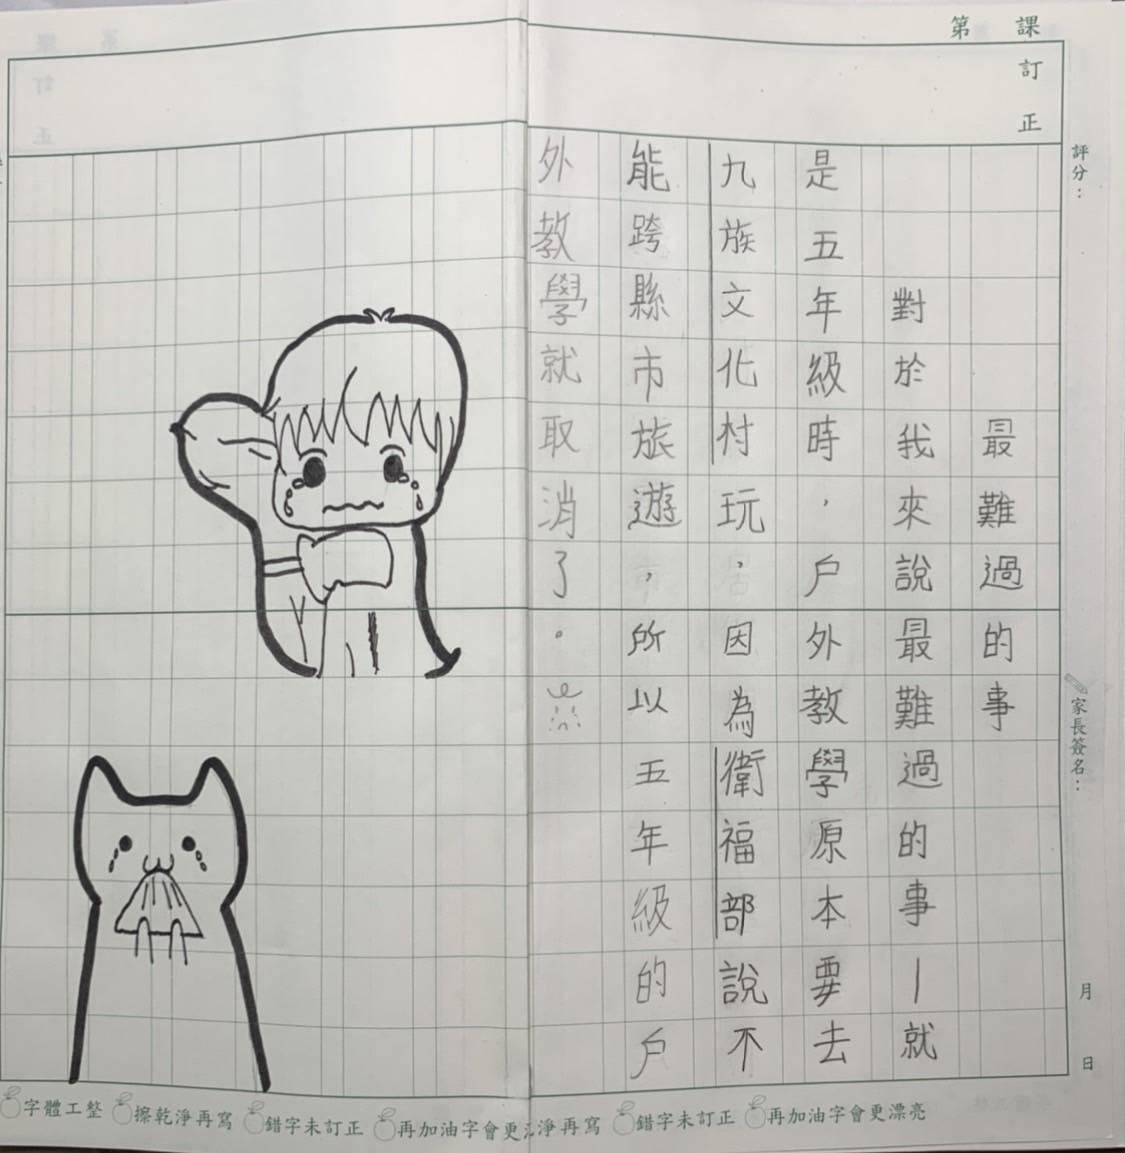 第　課
訂正
評分：
家長簽名：
月　日
最難過的事
對於我來說最難過的事｜就
是五年級時，戶外教學原本要去
九族文化村玩，因為衛福部說不
能跨縣市旅遊，所以五年級的戶
外教學就取消了。
字體工整　擦乾淨再寫　錯字未訂正　再加油字會更
淨再寫　錯字未訂正　再加油字會更漂亮